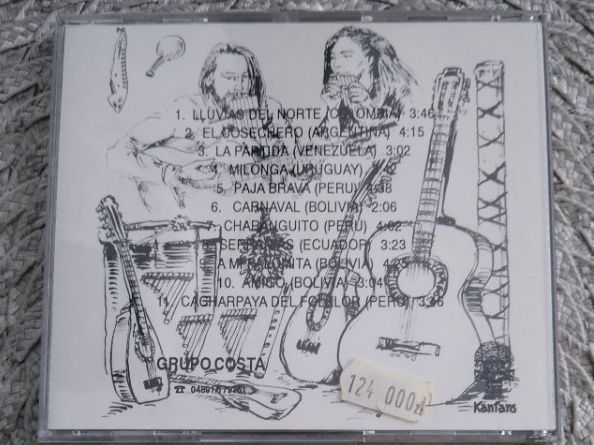 1. LLUVIAS DEL NORTE (COLOMBIA) 3:46
2. EL COSECHERO (ARGENTINA) 4:15
3. LA PARTIDA (VENEZUELA) 3:02
4. MILONGA (URUGUAY)
5. PAJA BRAVA (PERU)
6. CARNAVAL (BOLIVIA) 2:06
CHABANGUITO (PERU) 4:02
(ECUADOR) 3:23
(BOLIVIA)
10. AMIGO (BOLIVIA) 3:04
11. CACHARPAYA DEL FOLKLOR (PERU)
GRUPO COSTA
124 000zł
Kantaro